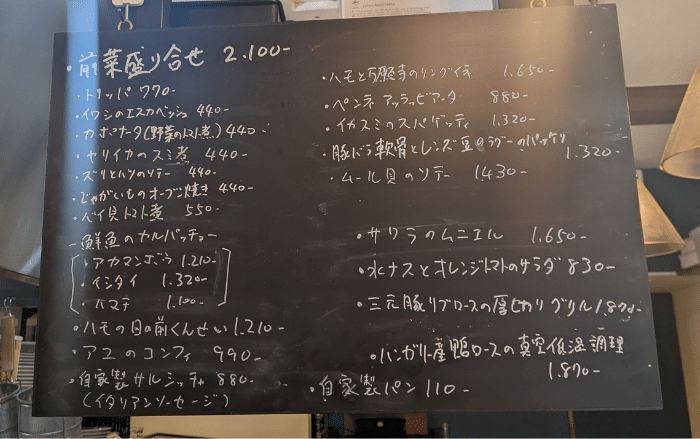 ・前菜盛り合せ 2.100-
・トリッパ 770-
・イワシのエスカベッシュ 440-
・カポナータ(野菜のトマト煮) 440-
・ヤリイカのスミ煮 440-
・ズリとハツのソテー 440-
・じゃがいものオーブン焼き 440-
・バイ貝トマト煮 550
-鮮魚のカルパッチョ-
・アカマンボウ 1.210-
・イシダイ 1.320-
・ハマチ 1.100-
・ハモの くんせい 1.210-
・アユのコンフィ 990-
・自家製サルシッチャ 880-
(イタリアンソーセージ)
・ハモと万願寺のリングイネ 1.650-
・ペンネ アッラッビアータ 880-
・イカスミのスパゲッティ 1.320-
・豚バラ軟骨とレンズ豆のラグーのパッケリ
1.320-
・ムール貝のソテー 1430-
・サワラのムニエル 1.650-
・水ナスとオレンジトマトのサラダ 830-
・三元豚リブロースの厚切りグリル 1.870-
・ハンガリー産鴨ロースの真空低温調理
1.870-
・自家製パン 110-